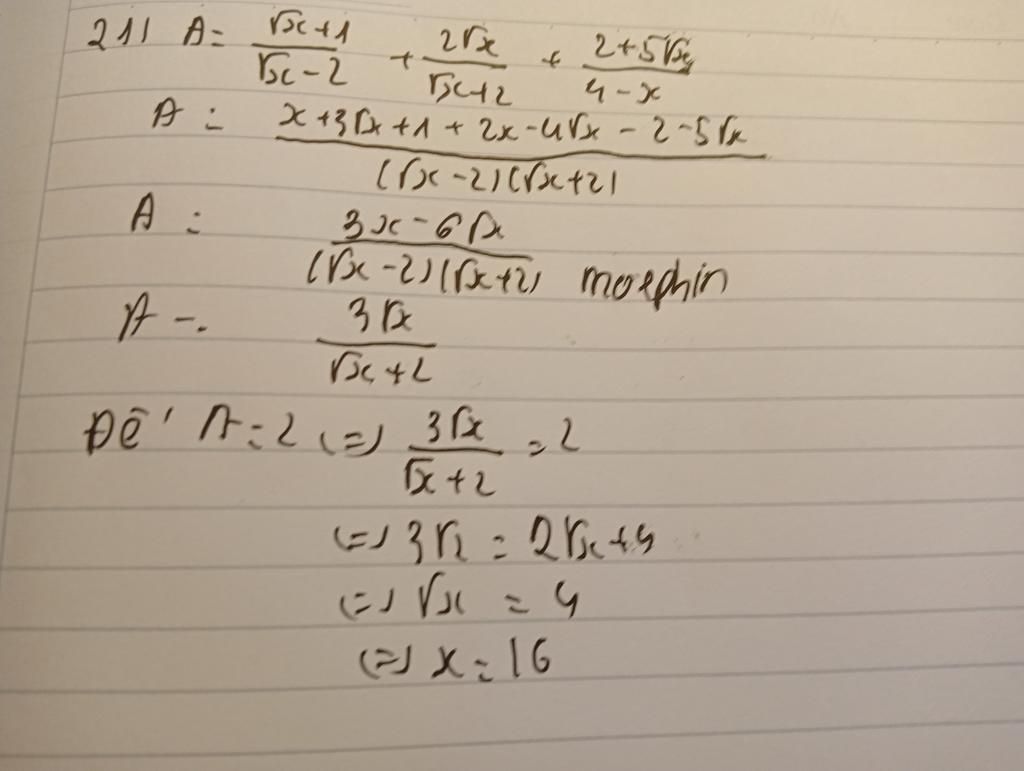 211 A = (√x+1)/(√x-2) + 2√x/(√x+2) + (2+5√x)/(4-x)
A = (x+3√x+1+2x-4√x-2-5√x)/((√x-2)(√x+2))
A = (3x-6√x)/((√x-2)(√x+2)) morphin
A = 3√x/(√x+2)
Để A=2 (=) 3√x/(√x+2) = 2
(=) 3√x = 2√x+4
(=) √x = 4
(=) x = 16